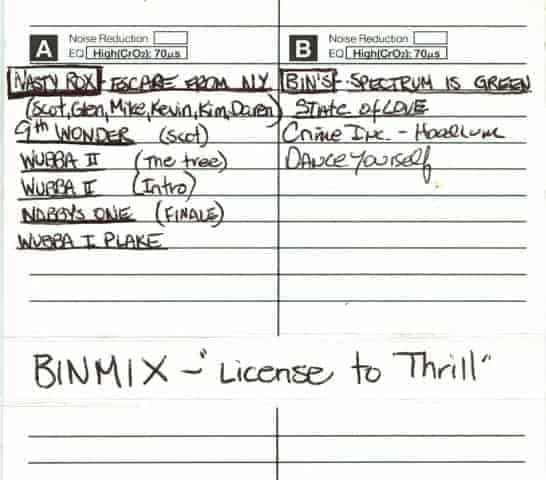 A Noise Reduction
EQ High(CrO2): 70µs
NASTY ROX - ESCAPE FROM N.Y.
(Scot, Glen, Mike, Kevin, Kim, Daren)
9th WONDER (Scot)
WUBBA II (The tree)
WUBBA II (Intro)
NABBY'S ONE (FINALE)
WUBBA I PLAKE
B Noise Reduction
EQ High(CrO2): 70µs
BIN'S - SPECTRUM IS GREEN
STATE OF LOVE
Crime Inc. - Hoodlum
DANCE Yourself
BINMIX - "License to Thrill"